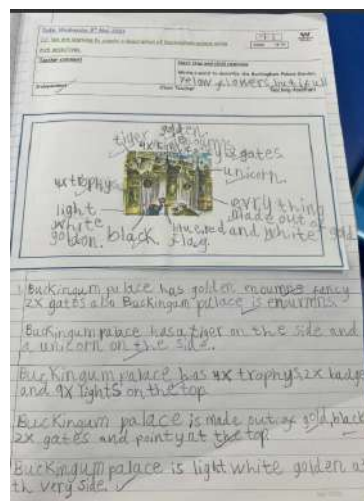 Date: Wednesday 8th May 2023
LO: We are learning to create a description of Buckingham palace using
Teacher comment
Next step and child response
Write a word to describe the Buckingham Palace Garden.
Yellow flowers, but is ull
Independent
Class Teacher
Teaching Assistant
golden
tiger
enoumns
gates
unicorn.
4x trophys
light
white
golden.
black
blue, red and white
flag.
evry thing
made out of
gold
Buckingum palace has golden enoumns fancy
2x gates also Buckingum palace is enourmns.
Buckingum palace has a tiger on the side and
a unicorn on the side.
Buckingum palace has 4x trophys, 2x badge
and 9x lights on the top
Buckingum palace is made out of gold, black
2x gates and pointy at the top.
Buckingum palace is light white golden at
th very side.